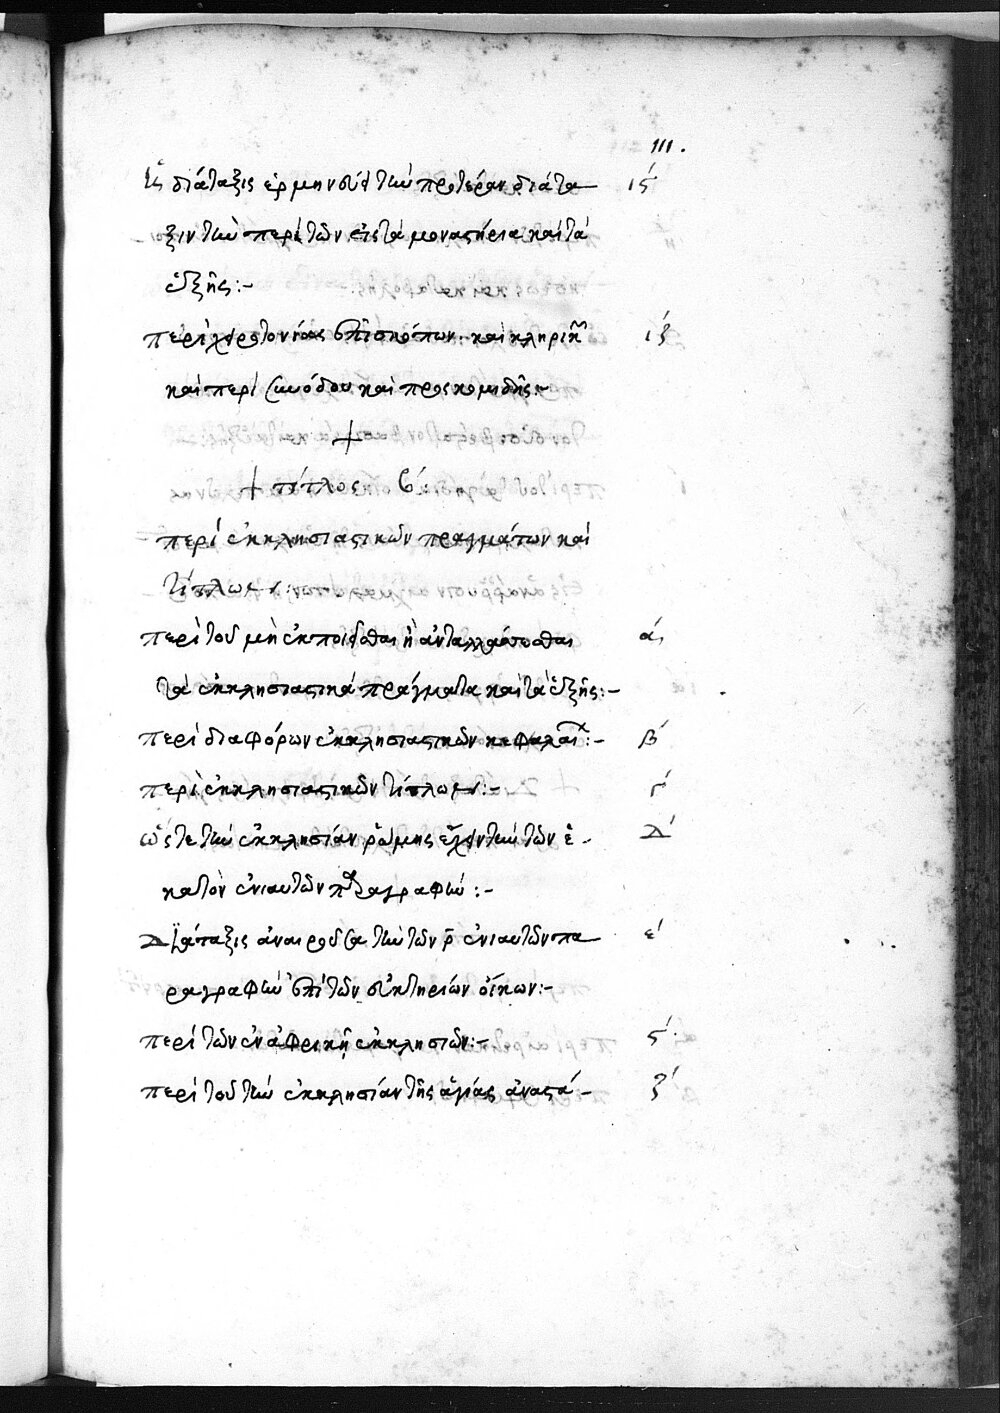 111.
διάταξις ἑρμηνεύει τὴν προτέραν διάτα ιϛʹ
ξιν τὴν περὶ τῶν εἰς τὰ μοναστήρια καὶ τὰ
ἑξῆς:-
περὶ χειροτονίας ἐπισκόπων· καὶ κληρικῶν ιζʹ
καὶ περὶ συνόδου καὶ προσκομιδῆς:-
+
+ τίτλος βʹ:
περὶ ἐκκλησιαστικῶν πραγμάτων καὶ
τίτλων:
περὶ τοῦ μὴ ἐκποιεῖσθαι ἢ ἀνταλλάττεσθαι αʹ
τὰ ἐκκλησιαστικὰ πράγματα καὶ τὰ ἑξῆς:-
περὶ διαφόρων ἐκκλησιαστικῶν κεφαλαί:- βʹ
περὶ ἐκκλησιαστικῶν τίτλων:- γʹ
ὥστε τὴν ἐκκλησίαν ῥώμης ἔχειν τὴν τῶν ἑ- Δʹ
κατὸν ἐνιαυτῶν παραγραφήν:-
Διάταξις ἀναιροῦσα τὴν τῶν ρ̄ ἐνιαυτῶν πα εʹ
ραγραφὴν ἐπὶ τῶν εὐκτηρίων οἴκων:-
περὶ τῶν ἐν ἀφρικῇ ἐκκλησιῶν:- ϛʹ
περὶ τοῦ τὴν ἐκκλησίαν τῆς ἁγίας ἀναστά- ζʹ